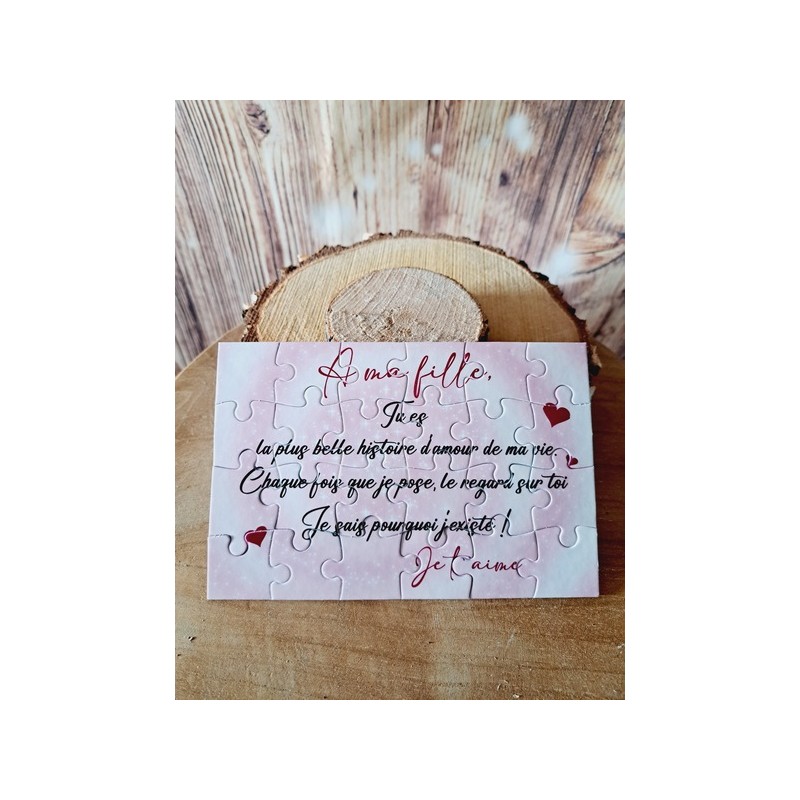 A ma fille,
Tu es
la plus belle histoire d'amour de ma vie.
Chaque fois que je pose, le regard sur toi
Je sais pourquoi j'existe !
Je t'aime